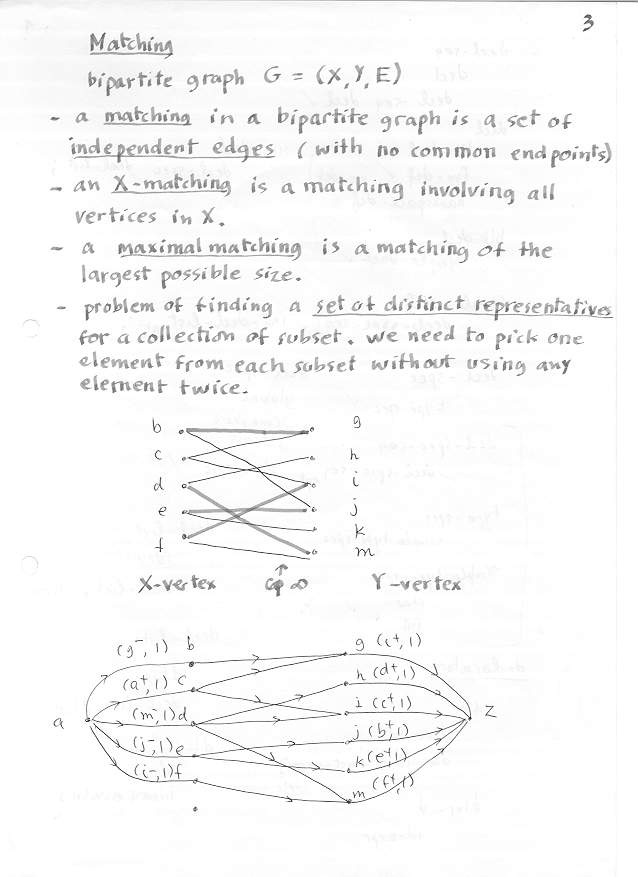 3
Matching
bipartite graph G = (X, Y, E)
- a matching in a bipartite graph is a set of
independent edges (with no common endpoints)
- an X-matching is a matching involving all
vertices in X.
- a maximal matching is a matching of the
largest possible size.
- problem of finding a set of distinct representatives
for a collection of subset. we need to pick one
element from each subset without using any
element twice.
b g
c h
d i
e j
k
f m
X-vertex ↑ ∞ Y-vertex
(g⁻, 1) b g (c⁺, 1)
(a⁺, 1) c h (d⁺, 1)
a (m⁻, 1) d i (c⁺, 1) z
(j⁻, 1) e j (b⁺, 1)
(i⁻, 1) f k (e⁺, 1)
m (f⁺, 1)